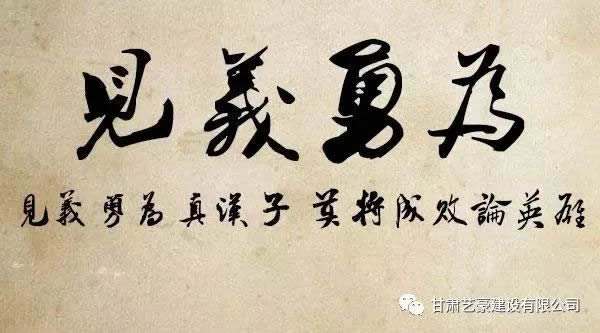 見義勇為
見義勇為真漢子 莫將成敗論英雄
甘肃艺豪建设有限公司